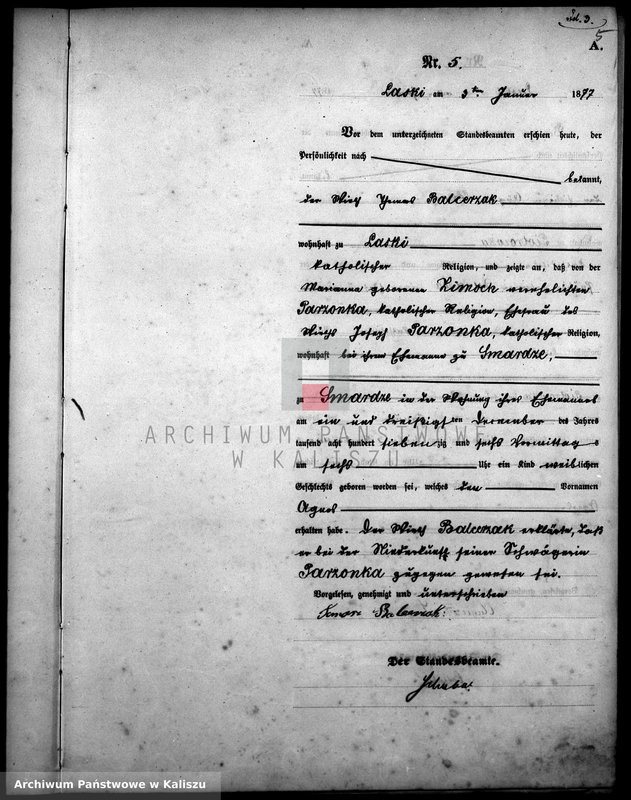 5
A.
Nr. 5.
Laski am 3ten Januar 1877
Vor dem unterzeichneten Standesbeamten erschien heute, der
Persönlichkeit nach
bekannt,
der Wirth Thomas Balcerzak
wohnhaft zu Laski
katholischer Religion, und zeigte an, daß von der
Marianna geborenen Zimoch verehelichten
Parzonka, katholischer Religion, Ehefrau des
Wirths Joseph Parzonka, katholischer Religion,
wohnhaft bei ihrem Ehemanne zu Smardze,
zu Smardze in der Wohnung ihres Ehemannes
am ein und dreißigsten Dezember des Jahres
tausend acht hundert siebenzig und sechs Vormittags
um sechs Uhr ein Kind weiblichen
Geschlechts geboren worden sei, welches den Vornamen
Agnes
erhalten habe. Der Wirth Balcerzak erklärte, daß
er bei der Niederkunft seiner Schwägerin
Parzonka zugegen gewesen sei.
Vorgelesen, genehmigt und unterschrieben
Balcerzak
Der Standesbeamte.
ARCHIWUM PAŃSTWOWE
W KALISZU
Archiwum Państwowe w Kaliszu